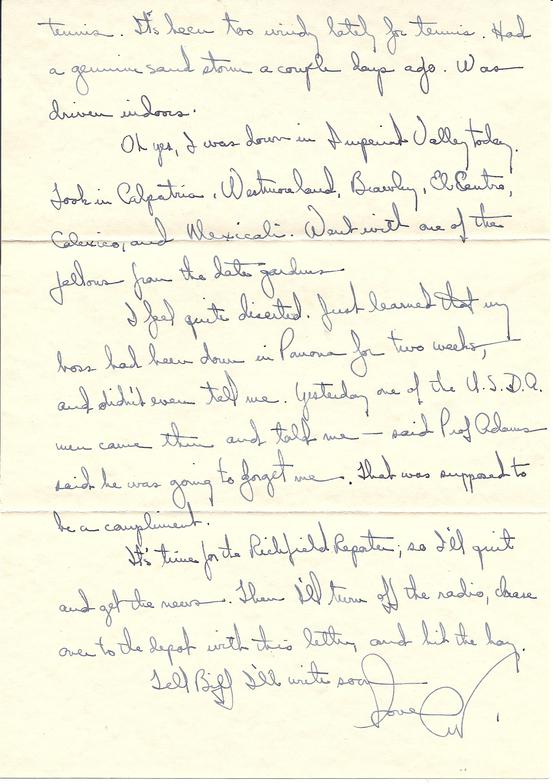 tennis. It's been too windy lately for tennis. Had
a genuine sand storm a couple days ago. Was
driven indoors.
Oh yes, I was down in Imperial Valley today.
Took in Calpatria, Westmoreland, Brawley, El Centro,
Calexico, and Mexicali. Went with one of the
fellows from the date gardens
I feel quite diserted. Just learned that my
boss had been down in Pomona for two weeks,
and didn't even tell me. Yesterday one of the U.S.D.A.
men came thru and told me — said Prof Adams
said he was going to forget me. That was supposed to
be a compliment.
It's time for the Richfield Reporter; so I'll quit
and get the news. Then I'll turn off the radio, chase
over to the depot with this letter, and hit the hay.
Tell Biff I'll write soon
Love